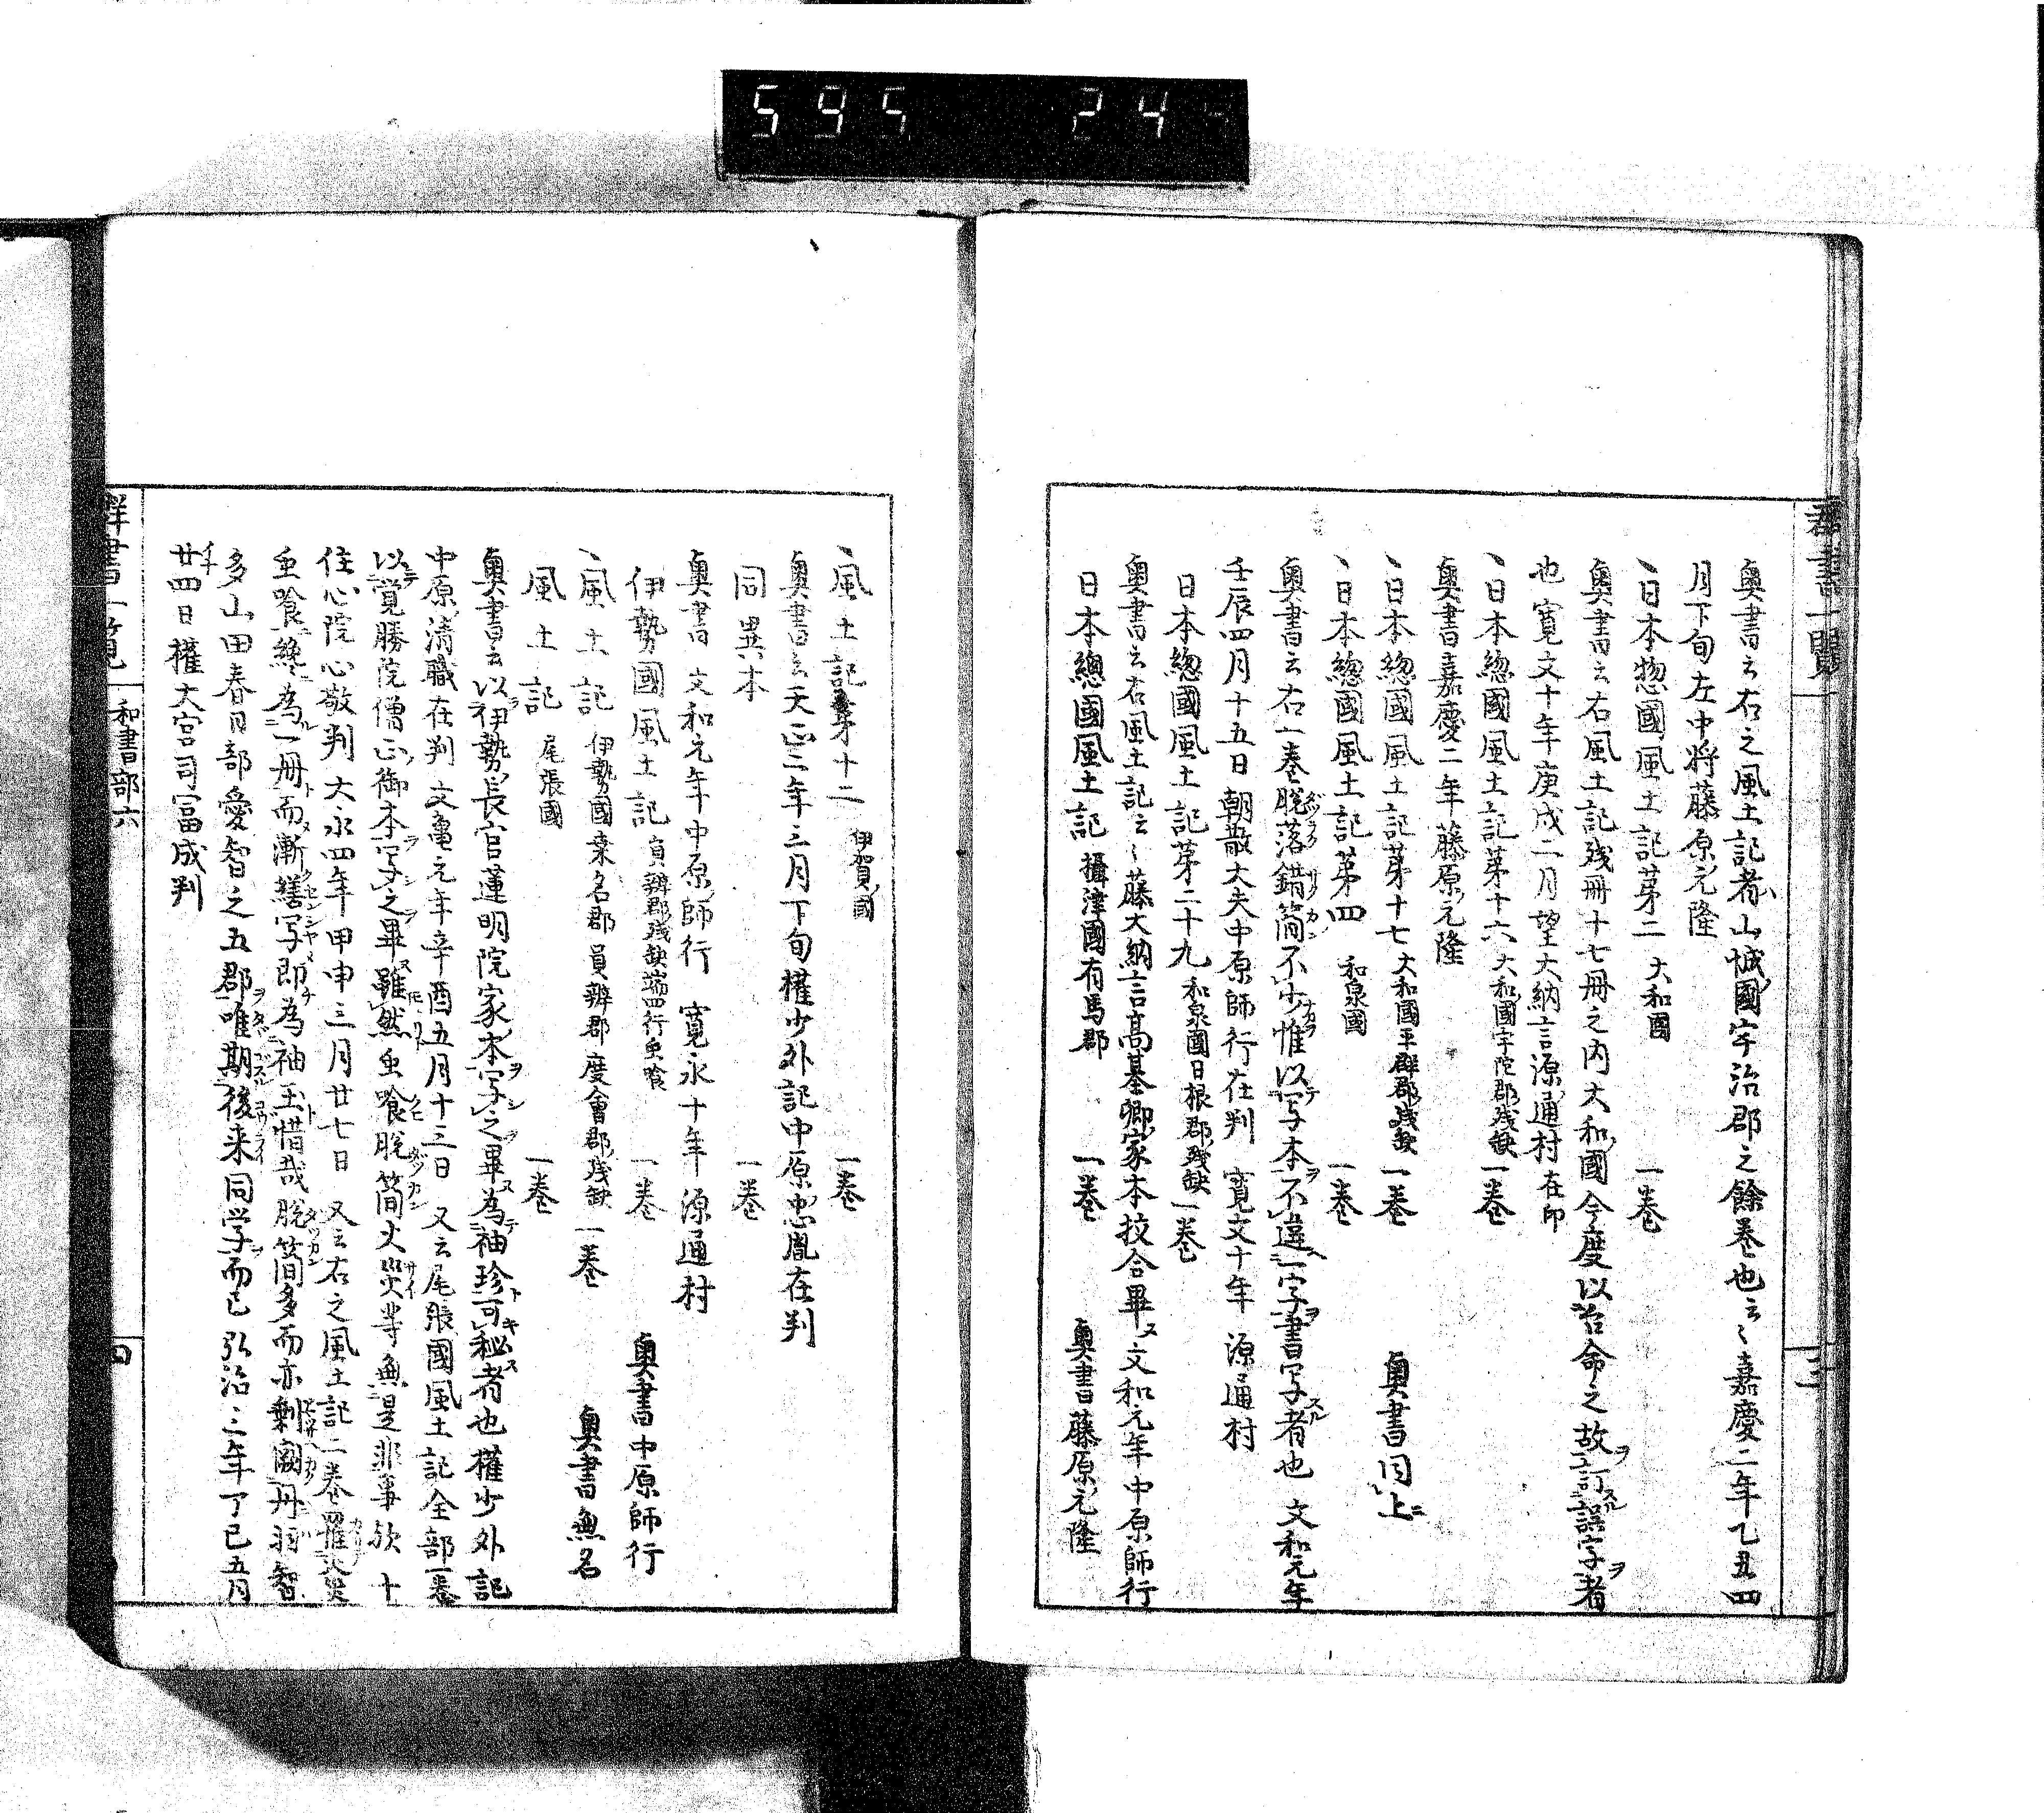 595 24
群書一覽
三
奥書云右之風土記者山城國宇治郡之餘巻也云〻嘉慶二年乙丑四
月下旬左中将藤原元隆
、日本惣國風土記苐二 大和國 一巻
奥書云右風土記残冊十七冊之内大和國今度以台命之故訂誤字者
也寛文十年庚戌二月望大納言源通村在印
、日本總國風土記苐十六大和國宇陀郡残缺 一巻
奥書嘉慶二年藤原元隆
、日本總國風土記苐十七大和國平群郡残缺 一巻 奥書同上
、日本總國風土記苐四 和泉國 一巻
奥書云右一巻脱落錯簡不少惟以写本不違一字書写者也 文和元年
壬辰四月十五日 朝散大夫中原師行在判 寛文十年 源通村
日本總國風土記苐二十九和泉國日根郡残缺 一巻
奥書云右風土記云〻藤大納言髙基卿家本挍合畢文和元年中原師行
日本總國風土記 攝津國有馬郡 一巻 奥書藤原元隆
、風土記苐十二 伊賀國 一巻
奥書云天正二年三月下旬權少外記中原忠胤在判
同異本 一巻
奥書 文和元年中原師行 寛永十年 源通村
伊勢國風土記 員辨郡残缺端四行虫喰 一巻 奥書中原師行
、風土記 伊勢國桒名郡 員辨郡 度會郡残缺 一巻 奥書無名
風土記 尾張國 一巻
奥書云以伊勢長官蓮明院家本写之畢為袖珍可秘者也權少外記
中原清職在判 文亀元年辛酉五月十三日 又云尾張國風土記全部一巻
以覚勝院僧正御本写之畢雖然虫喰脱簡火災等無是非事欤 十
住心院心敬判 大永四年甲申三月廿七日 又云右之風土記二巻罹火災
虫喰終為一冊而漸繕写即為袖玉惜哉脱簡多而亦剰闕丹羽智
多山田春日部愛智之五郡唯期後来同学而已 弘治三年丁巳五月
廿四日權大宮司冨成判
群書一覧
和書部六
四